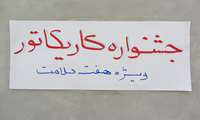 جشنواره کاریکاتور
ویژه هفت سلامت